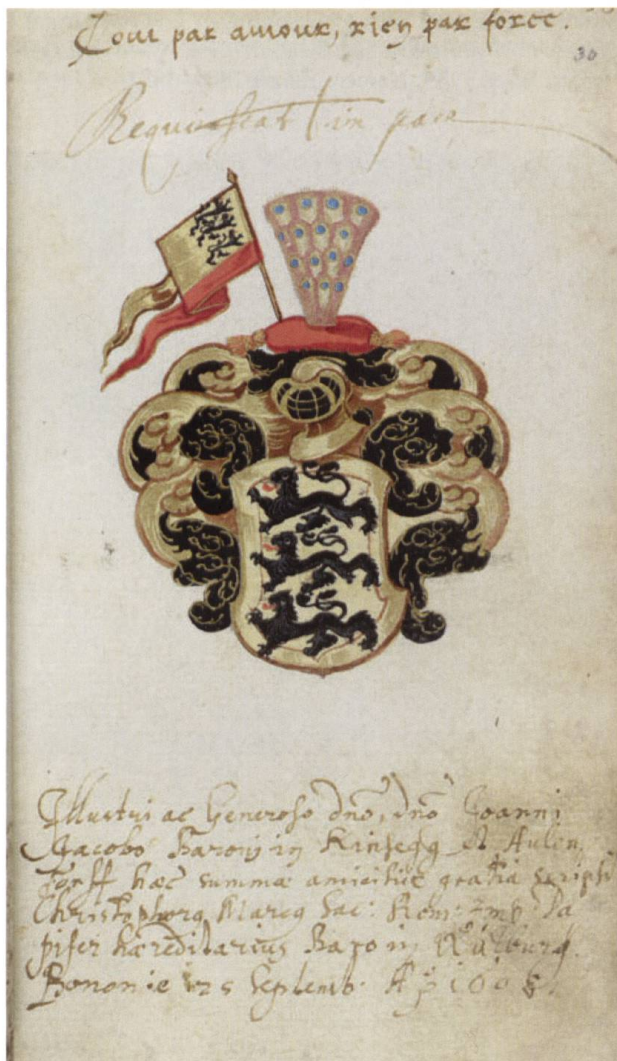 Tout par amour, rien par force.
30
Requiescat in pace
Illustri ac Generoso dño, dño Joanni
Jacobo Baroni in Kinsegg et Aulen,
dorff hæc summæ amicitiæ gratia scripsi
Christophorg Marcg Sac: Rom: Imp: Da
pifer hæreditarius Baro in
Bononie 25 Septemb: Aº